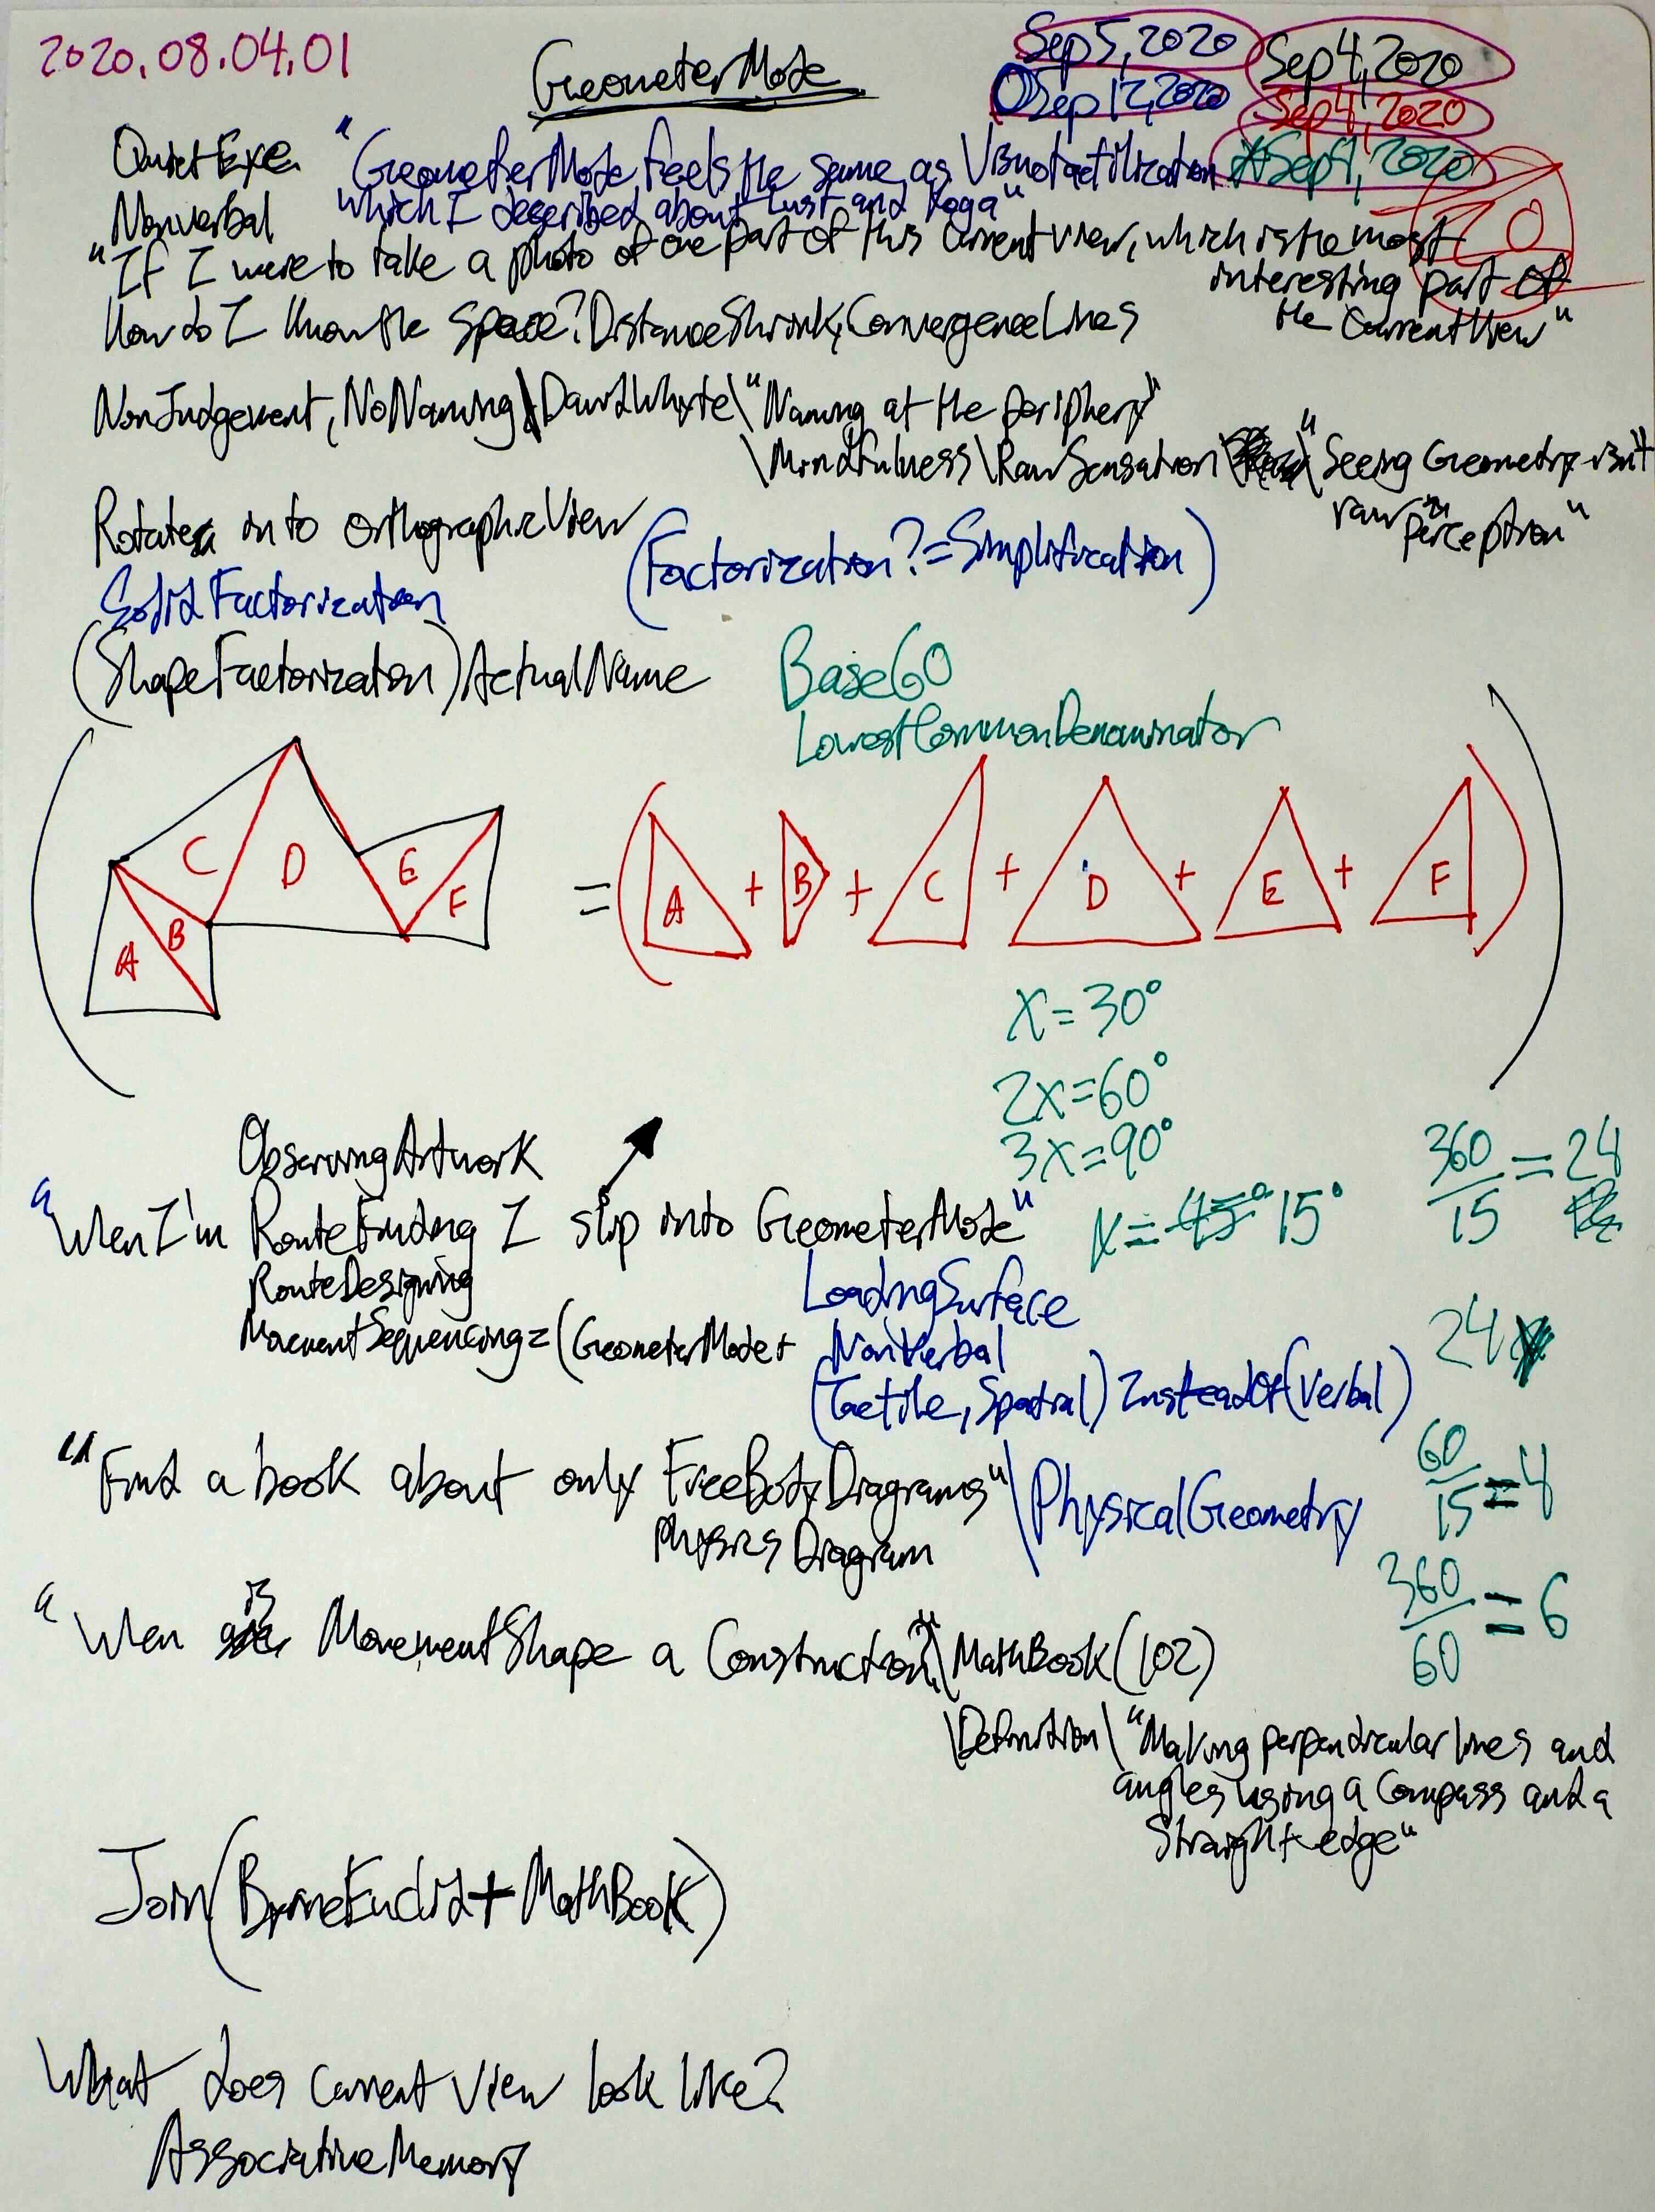 2020.08.04.01
GeometerMode
Sep5,2020
Sep4,2020
Sep12,2020
Sep4,2020
Sep4,2020
QuietExe
"GeometerMode feels the same as Visuotactilization
which I described about Lust and Yoga"
Nonverbal
"If I were to take a photo of one part of this current view, which is the most
interesting part of
the CurrentView"
How do I know the Space? DistanceShrink, ConvergenceLines
NonJudgement, NoNaming\DavidWhyte\"Naming at the periphery"
\Mindfulness\RawSensation\"Seeing Geometry isn't
raw perception"
Rotates into OrthographicView
(Factorization?=Simplification)
SolidFactorization
(ShapeFactorization)ActualName
Base60
LowestCommonDenominator
C D E F A B
=(A + B + C + D + E + F)
X=30°
2x=60°
3x=90°
X=45° 15°
360/15=24
24
60/15=4
360/60=6
ObservingArtwork
"When I'm RouteFinding I slip into GeometerMode"
RouteDesigning
MovementSequencing=(GeometerMode+
LoadingSurface
NonVerbal
(Tactile, Spatial)InsteadOf(Verbal)
"Find a book about only FreeBodyDiagrams"\PhysicalGeometry
Physics Diagram
"When is MovementShape a Construction?"\MathBook(102)
\Definition\"Making perpendicular lines and
angles using a Compass and a
Straight-edge"
Join(ByrneEuclid+MathBook)
What does current view look like?
AssociativeMemory